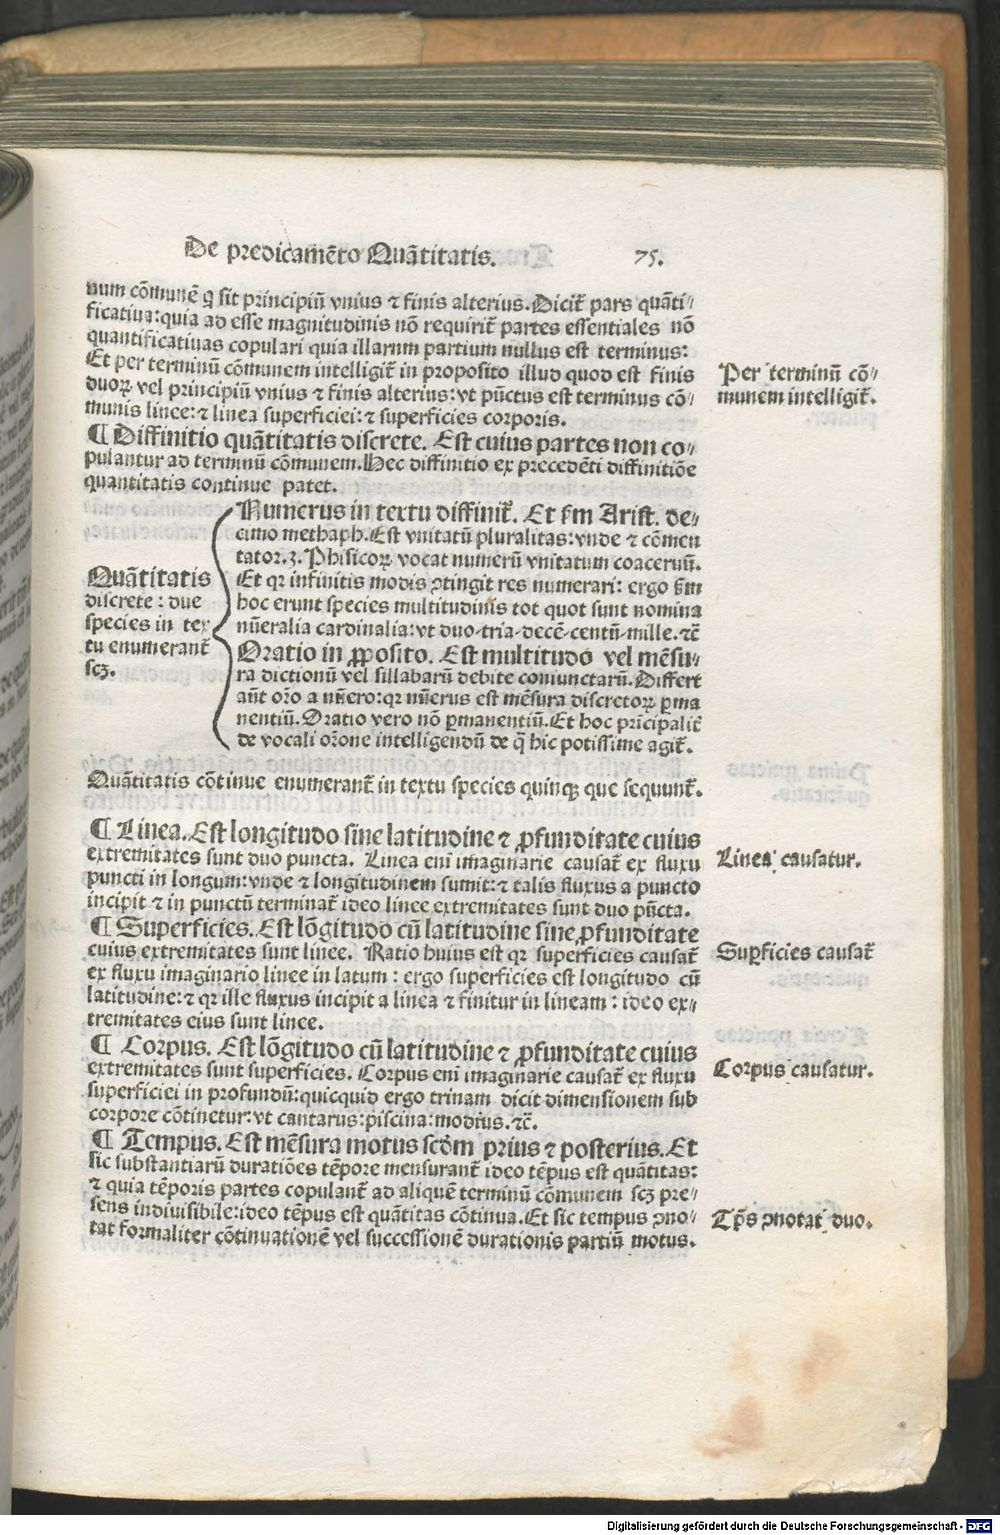 De predicamēto Quātitatis. 75.
num cōmunē q̄ sit principiū vnius ⁊ finis alterius. Dicit̄ pars quāti⸗
ficatiua: quia ad esse magnitudinis nō requirit̄ partes essentiales nō
quantificatiuas copulari quia illarum partium nullus est terminus:
Et per terminū cōmunem intelligit̄ in proposito illud quod est finis
duoꝝ vel principiū vnius ⁊ finis alterius: vt pūctus est terminus cō⸗
munis linee: ⁊ linea superficiei: ⁊ superficies corporis.
Per terminū cō⸗
munem intelligit̄.
¶ Diffinitio quātitatis discrete. Est cuius partes non co⸗
pulantur ad terminū cōmunem. Hec diffinitio ex precedēti diffinitiōe
quantitatis continue patet.
Quātitatis
discrete: due
species in tex
tu enumerant̄
scꝫ.
Numerus in textu diffinit̄. Et ẜm Arist. de⸗
cimo methaph. Est vnitatū pluralitas: vnde ⁊ cōmen
tator. 3. Phisicoꝝ vocat numerū vnitatum coaceruū.
Et qꝛ infinitis modis ꝯtingit res numerari: ergo ẜm
hoc erunt species multitudinis tot quot sunt nomina
nūeralia cardinalia: vt duo⸗tria⸗decē⸗centū⸗mille. ⁊c̄
Oratio in ꝓposito. Est multitudo vel mēsu⸗
ra dictionū vel sillabarū debite coniunctarū. Differt
aūt orō a nūero: qꝛ nūerus est mēsura discretoꝝ ꝑma
nentiū. Oratio vero nō ꝑmanentiū. Et hoc prīcipalit̄
de vocali orōne intelligendū de q̄ hic potissime agit̄.
Quātitatis cōtinue enumerant̄ in textu species quinqꝫ que sequunt̄.
¶ Linea. Est longitudo sine latitudine ⁊ ꝓfunditate cuius
extremitates sunt duo puncta. Linea enī imaginarie causat̄ ex fluxu
puncti in longum: vnde ⁊ longitudinem sumit: ⁊ talis fluxus a puncto
incipit ⁊ in punctū terminat̄ ideo linee extremitates sunt duo pūcta.
Linea causatur.
¶ Superficies. Est lōgitudo cū latitudine sine ꝓfunditate
cuius extremitates sunt linee. Ratio huius est qꝛ superficies causat̄
ex fluxu imaginario linee in latum: ergo superficies est longitudo cū
latitudine: ⁊ qꝛ ille fluxus incipit a linea ⁊ finitur in lineam: ideo ex⸗
tremitates eius sunt linee.
Suꝑficies causat̄
¶ Corpus. Est lōgitudo cū latitudine ⁊ ꝓfunditate cuius
extremitates sunt superficies. Corpus enī imaginarie causat̄ ex fluxu
superficiei in profundū: quicquid ergo trinam dicit dimensionem sub
corpore cōtinetur: vt cantarus: piscina: modius. ⁊c̄.
Corpus causatur.
¶ Tempus. Est mēsura motus scd̄m prius ⁊ posterius. Et
sic substantiarū duratiōes tēpore mensurant̄ ideo tēpus est quātitas:
⁊ quia tēporis partes copulant̄ ad aliquē terminū cōmunem scꝫ pre⸗
sens indiuisibile: ideo tēpus est quātitas cōtinua. Et sic tempus ꝯno⸗
tat formaliter cōtinuationē vel successionē durationis partiū motus.
Tp̄s ꝯnotat duo.
Digitalisierung gefördert durch die Deutsche Forschungsgemeinschaft - DFG